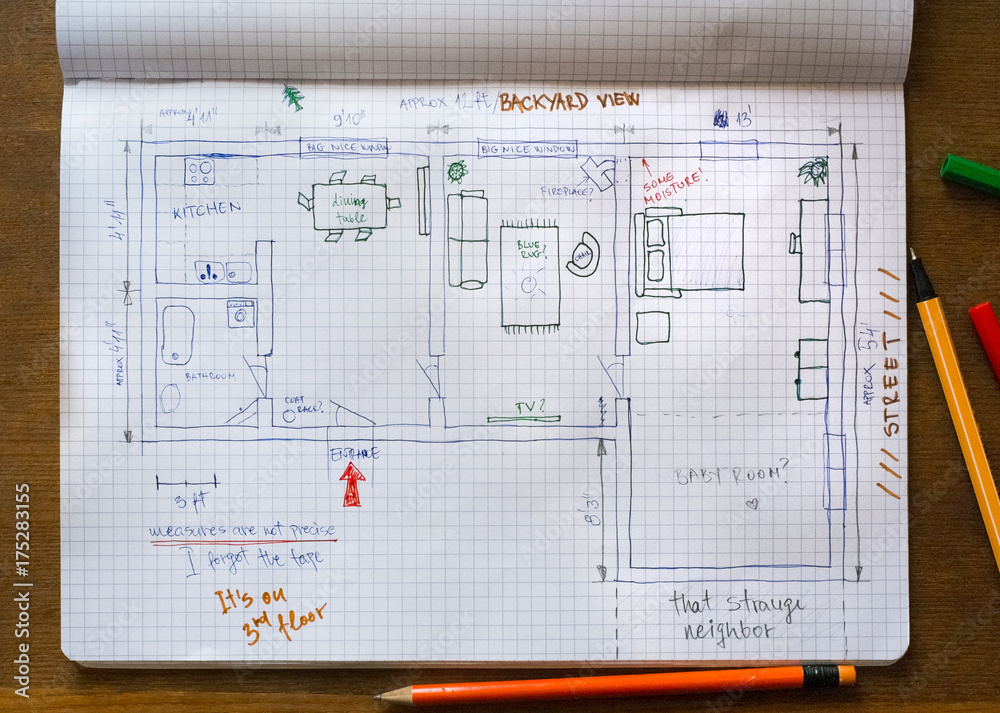 APPROX 12 ft/BACKYARD VIEW
APPROX 4'11"
9'10"
13'
BIG NICE WINDOW
BIG NICE WINDOW
KITCHEN
dining
table
FIREPLACE?
SOME
MOISTURE!
BLUE
RUG?
CHAIR
4'11"
APPROX 4'11"
BATHROOM
COAT
RACK?
TV?
ENTRANCE
APPROX 54'
/// STREET ///
8'3"
BABY ROOM?
3 ft
measures are not precise
I forgot the tape
It's on
3rd floor
that strange
neighbor
Adobe Stock | #175283155